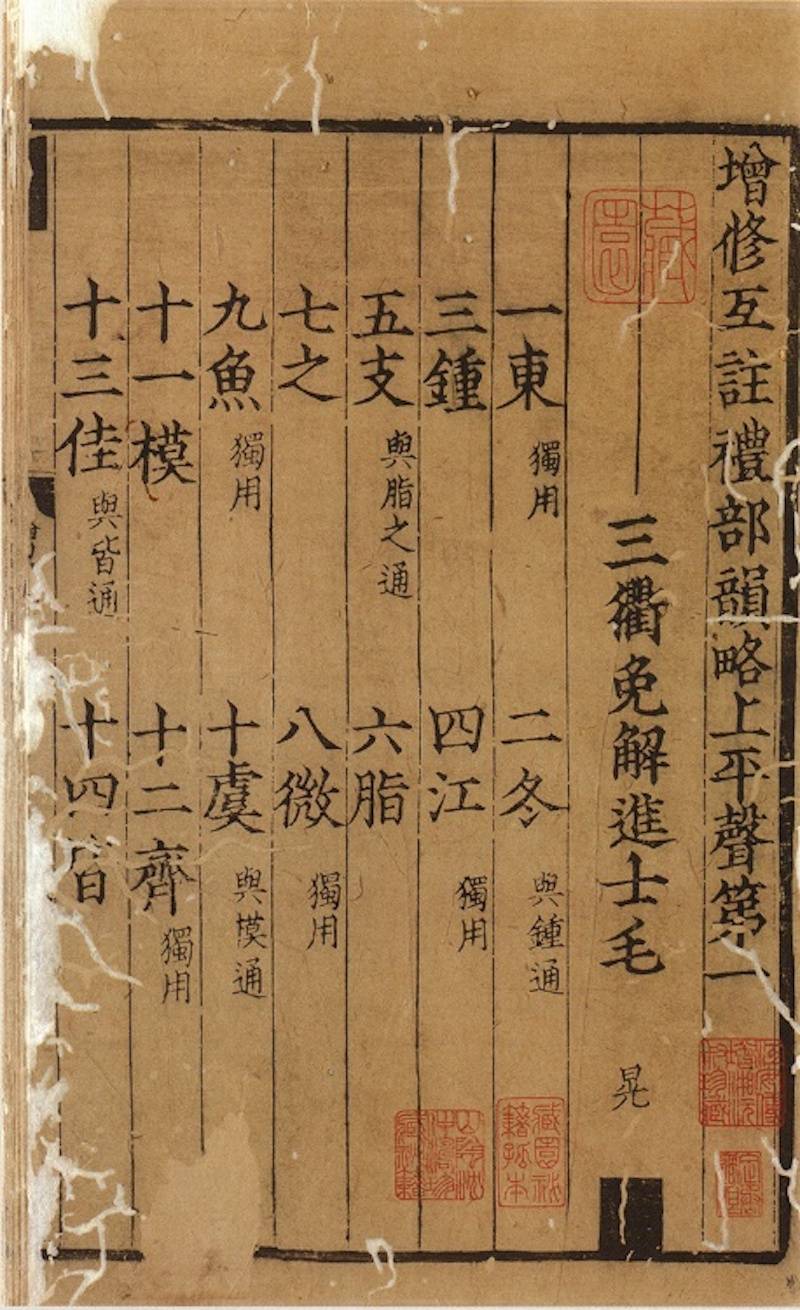 增修互註禮部韻略上平聲第一
三衢免解進士毛 晃
一東 獨用 二冬 與鍾通
三鍾 四江 獨用
五支 與脂之通 六脂
七之 八微 獨用
九魚 獨用 十虞 與模通
十一模 十二齊 獨用
十三佳 與皆通 十四皆
藏園
藏園祕籍孤本